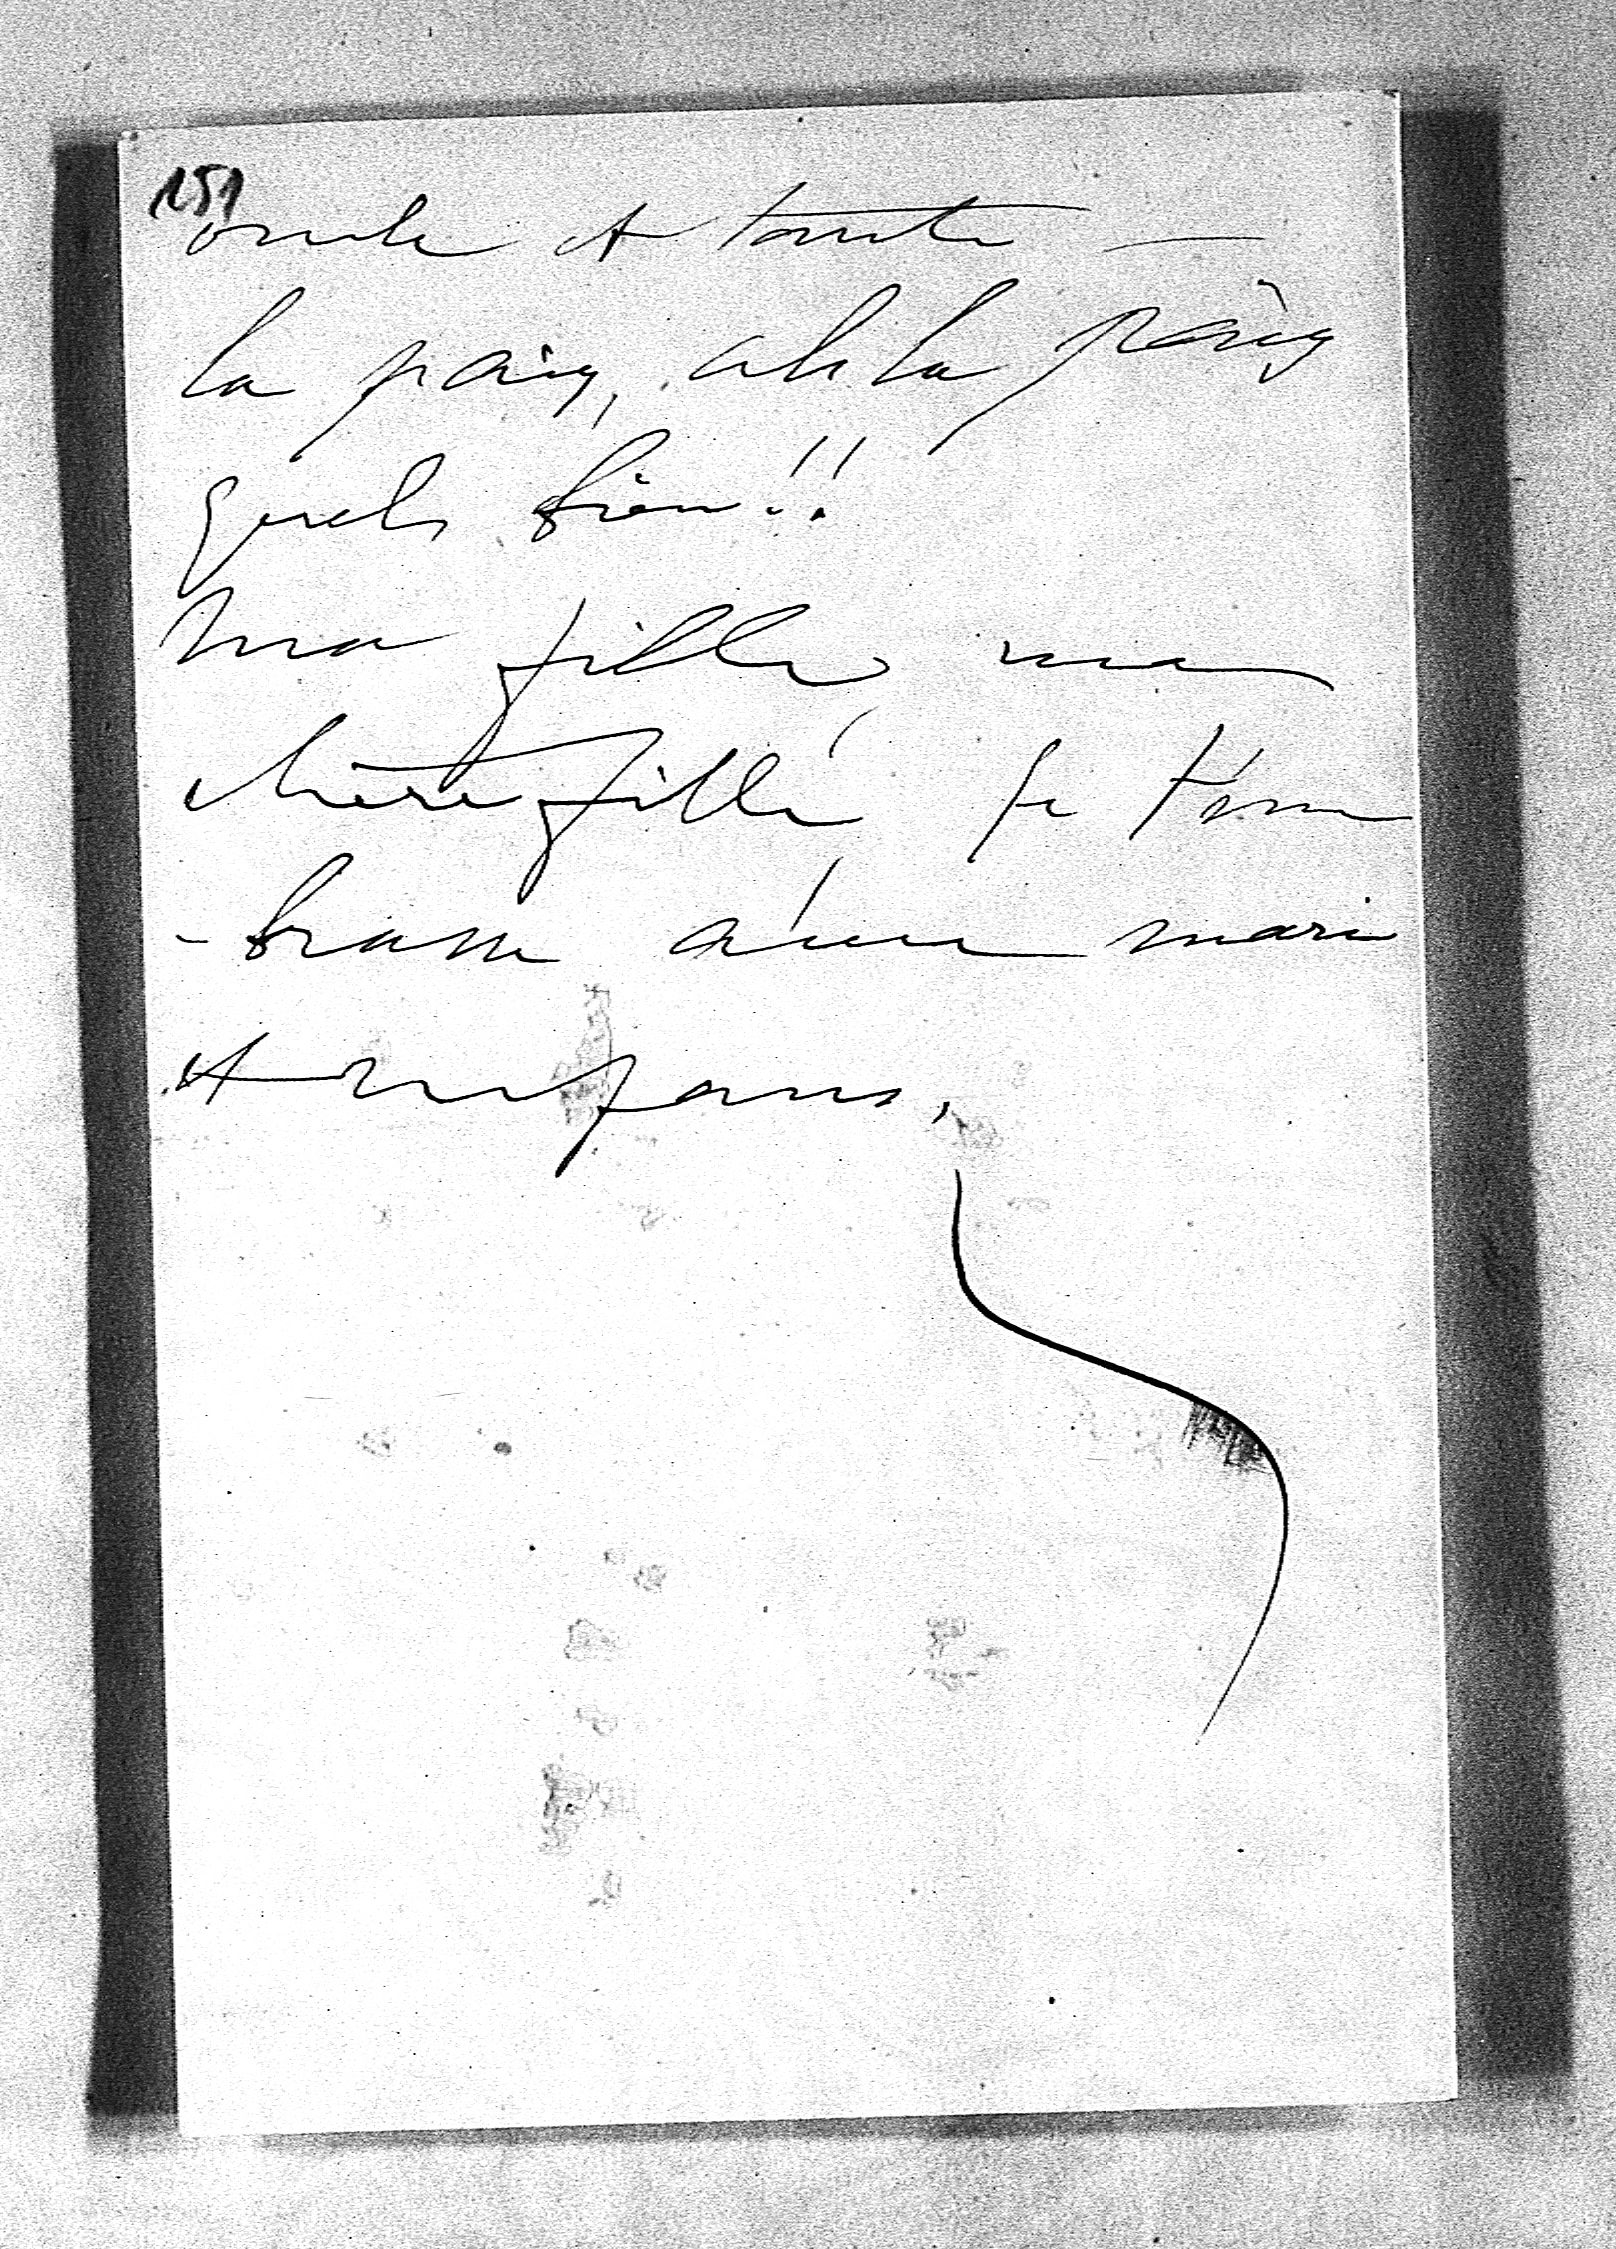 151
oncle et tante —
la paix, ah la paix
quels bien!!
Ma fille, ma
chère fille, je t'em
-brasse avec mari
et enfans.